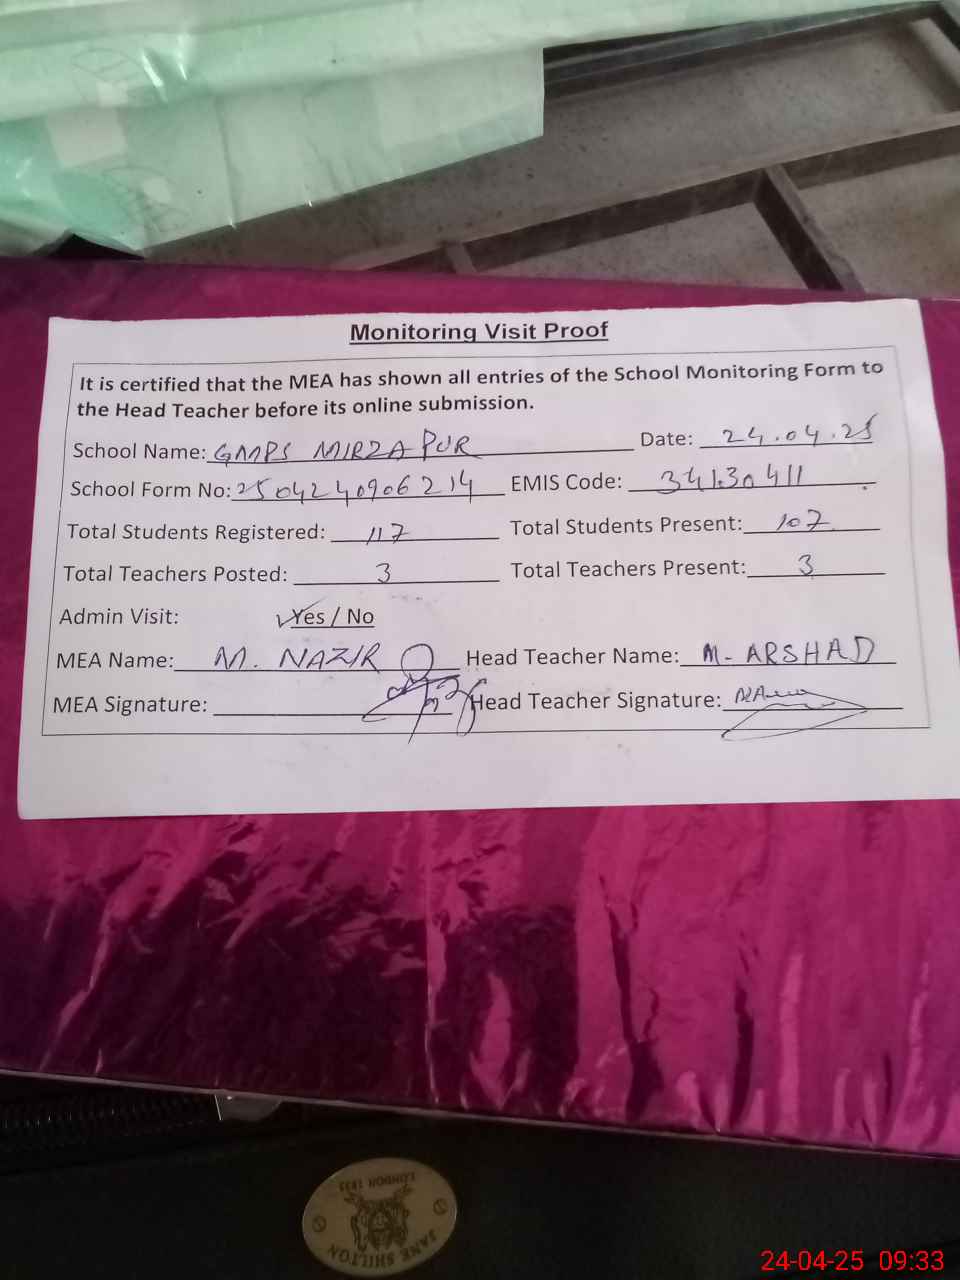 Monitoring Visit Proof
It is certified that the MEA has shown all entries of the School Monitoring Form to
the Head Teacher before its online submission.
School Name: GMPS MIRZA PUR Date: 24.04.25
School Form No: 2504240906214 EMIS Code: 34130411
Total Students Registered: 117 Total Students Present: 107
Total Teachers Posted: 3 Total Teachers Present: 3
Admin Visit: Yes / No
MEA Name: M. NAZIR Head Teacher Name: M. ARSHAD
MEA Signature: Head Teacher Signature:
LONDON 1835
JANE SHILTON
24-04-25 09:33